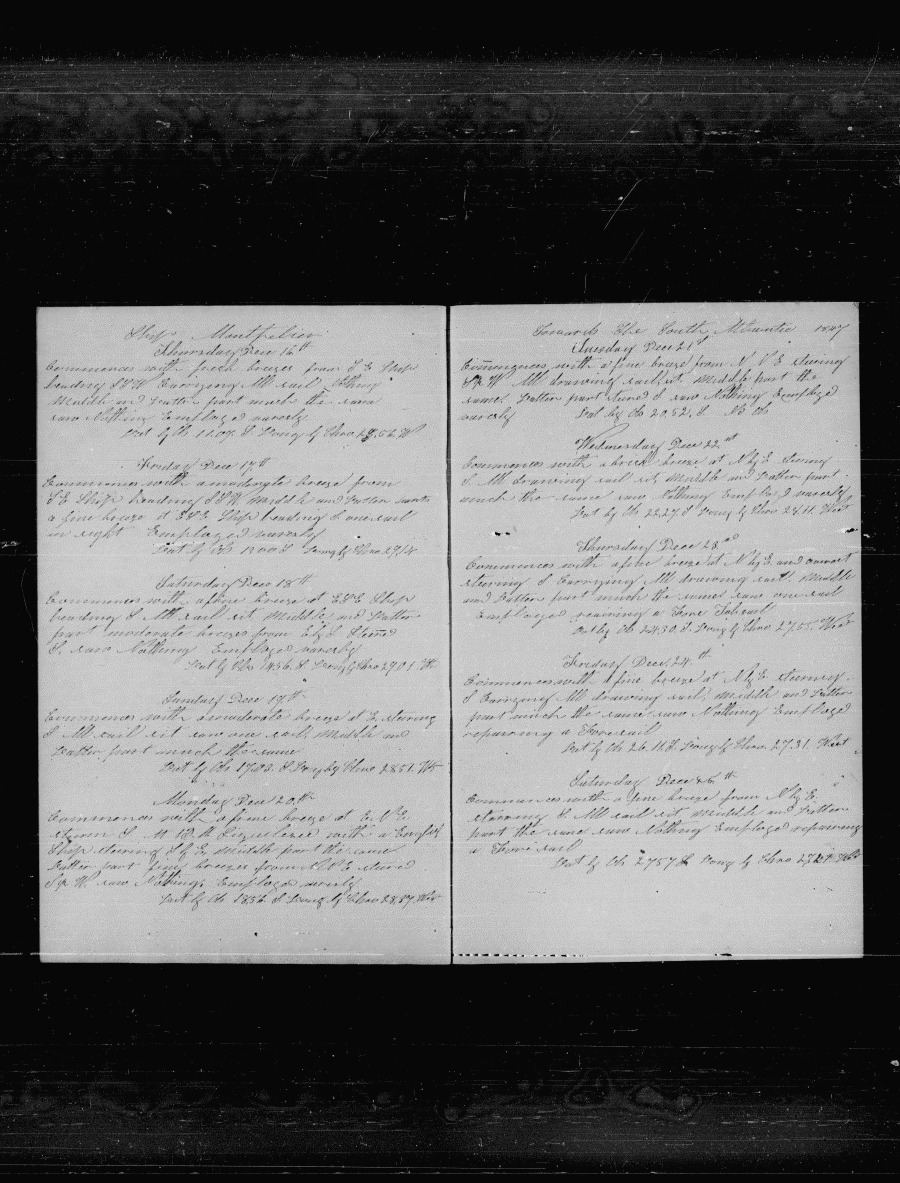 Ship Montpelier
Thursday Dec 16th
Commences with fresh breezes from S E Ship
heading SSW Carrying All sail Nothing
Middle and Latter part much the same
saw Nothing Employed variously
Lat by Ob 11.07. S Long by Chro 29.56 W
Friday Dec 17th
Commences with a moderate breeze from
S E Ship heading SSW Middle and Latter parts
a fine breeze at ESE Ship heading S one sail
in sight Employed variously
Lat by Ob S Long by Chro 29/4
Saturday Dec 18th
Commences with a fine breeze at ESE Ship
heading S All sail sit Middle and Latter
part moderate breezes from E by S Steered
S. saw Nothing Employed variously
Lat by Obs 14.56. S Long by Chro 29.01 W
Sunday Dec 19th
Commences with a moderate breeze at E steering
S All sail sit saw one sail Middle and
Latter part much the same
Lat by Ob 17.02. S Long by Chro 28.51. W
Monday Dec 20th
Commences with a fine breeze at E N E
steern S with a English
Ship steering S by E, Middle part the same
Latter part fine breezes from steered
S by W saw Nothing. Employed variously
Lat by Ob 18.56 S Long by Chro 28.57 West
Towards the South Atlantic 1847
Tuesday Dec 21st
Commences with a fine breeze from N N E steering
S by W All drawing sail sit Middle part the
same Latter part steered S saw Nothing Employed
variously Lat by Ob 20.52. S No Ob
Wednesday Dec 22nd
Commences with a brisk breeze at N by E steering
S All drawing sail sit Middle and Latter part
much the same saw Nothing Employed variously
Lat by Ob 22.27 S Long by Chro 28.11. West
Thursday Dec 23rd
Commences with a fine breeze at N by E and
steering S Carrying All drawing sail. Middle
and Latter part much the same saw one sail
Employed repairing a Fore Topsail
Lat by Ob 24.30. S Long by Chro 27.55. West
Friday Dec. 24th
Commences with a fine breeze at N by E steering
S Carrying All drawing sail. Middle and Latter
part much the same saw Nothing Employed
repairing a Foresail
Lat by Ob 26.11. S. Long by Chro. 27.31. West
Saturday Dec 25th
Commences with a fine breeze from N by E.
steering S All sail sit Middle and Latter
part the same saw Nothing Employed repairing
a Fore sail
Lat by Ob 27.57 S Long by Chro West